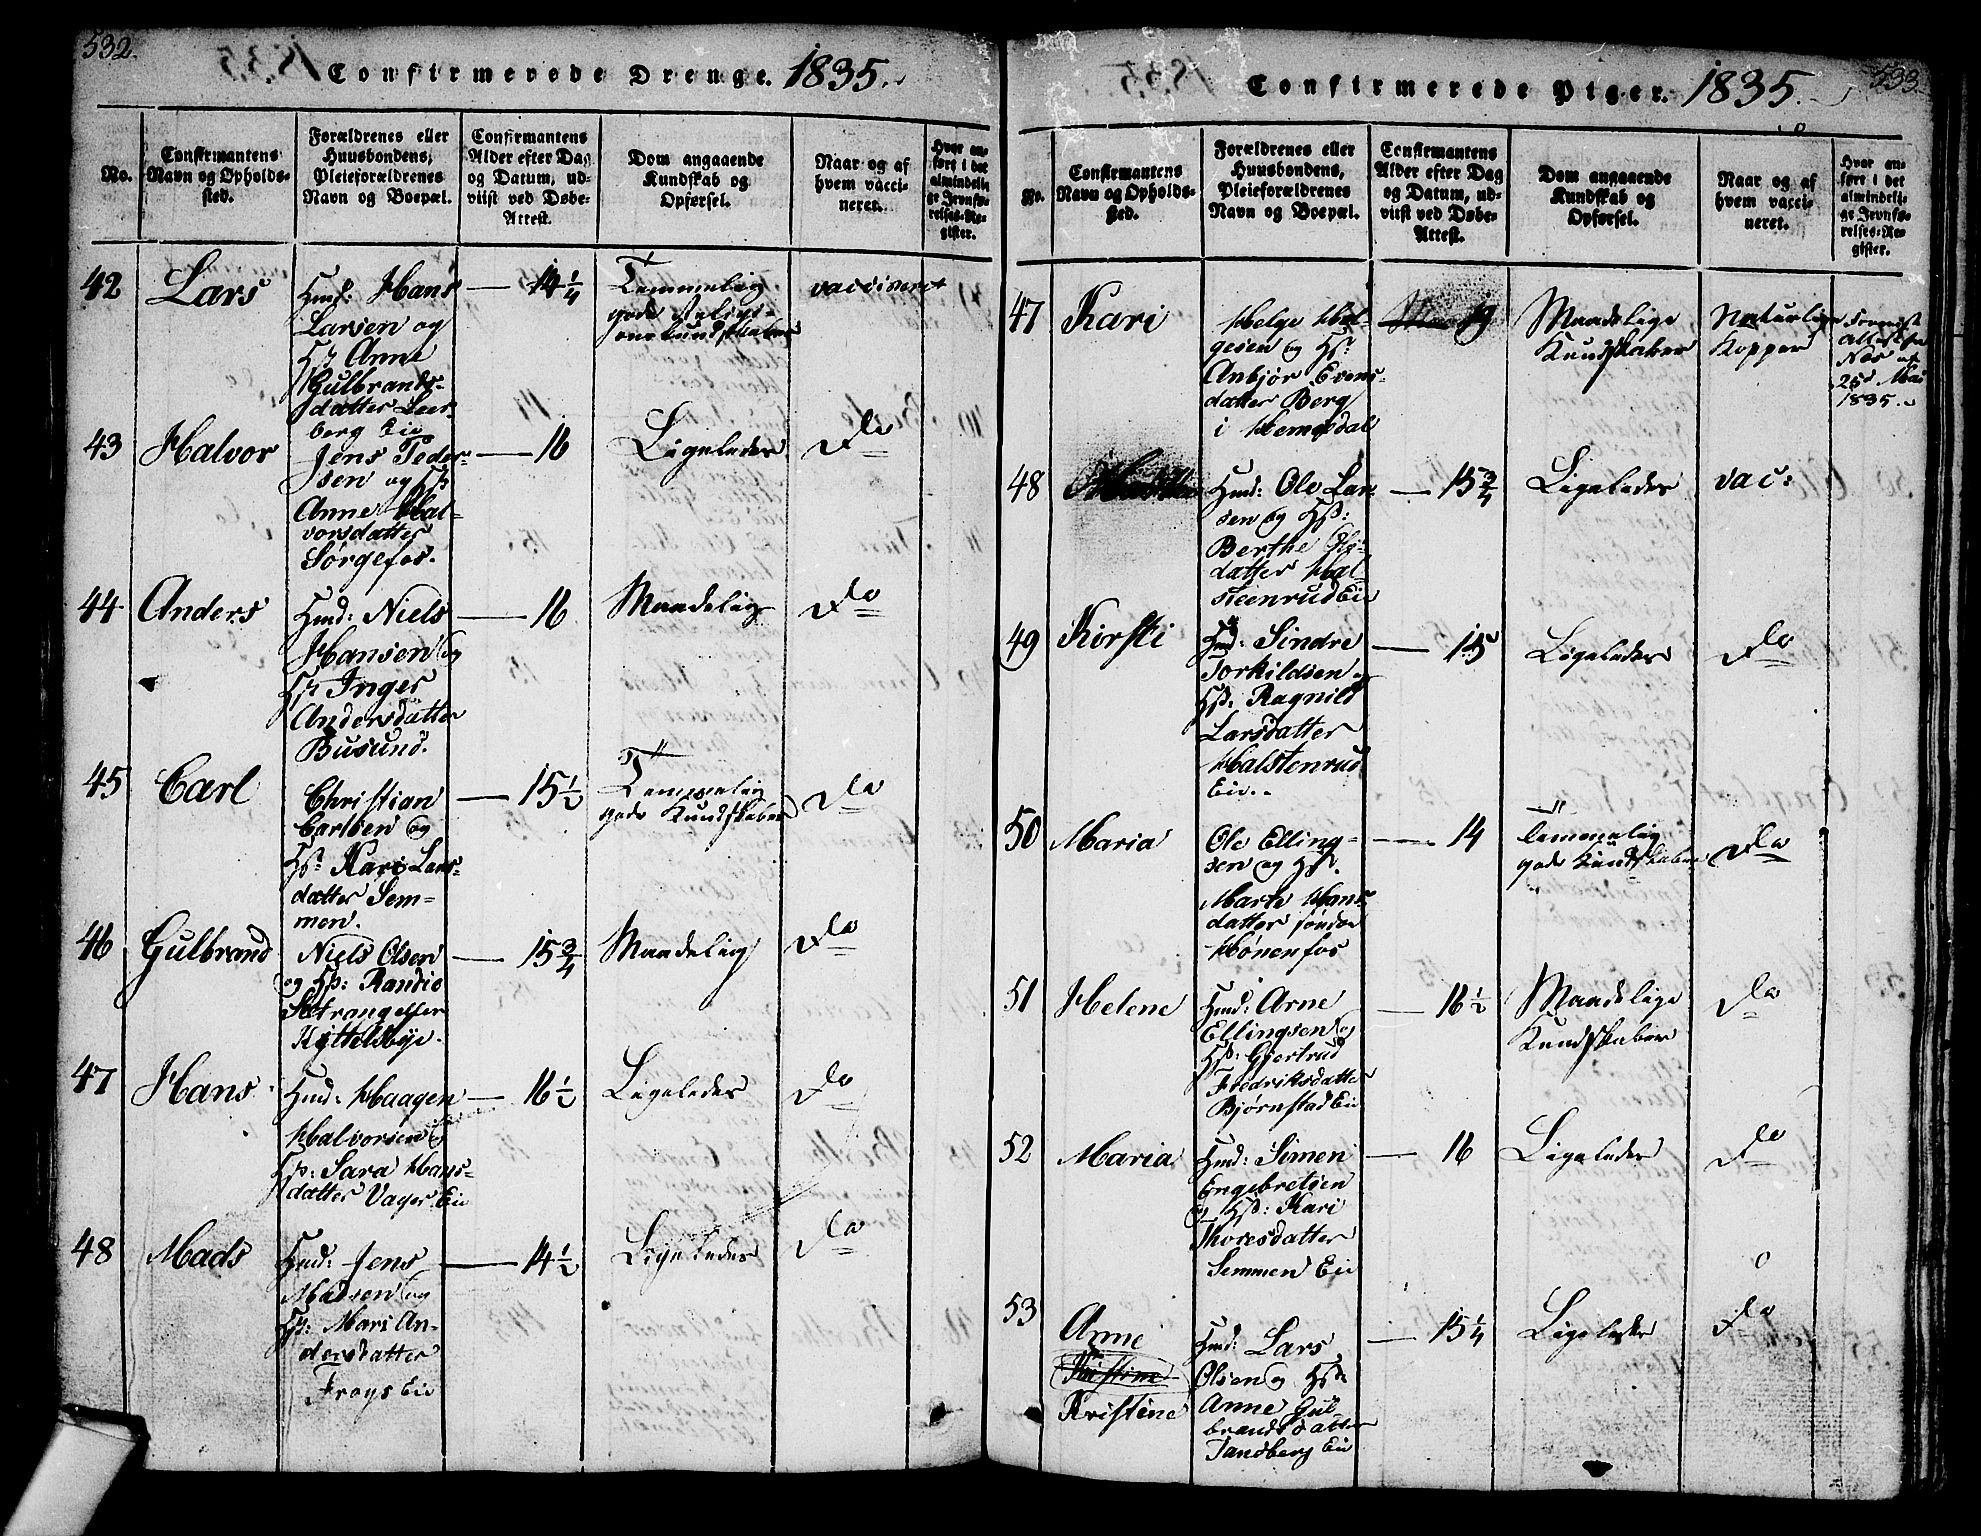 532.
Confirmerede Drenge. 1835.
No.
Confirmantens
Navn og Opholds-
sted.
Forældrenes eller
Huusbondens,
Pleieforældrenes
Navn og Boepæl.
Confirmantens
Alder efter Dag
og Datum, ud-
viist ved Døbe-
Attest.
Dom angaaende
Kundskab og
Opførsel.
Naar og af
hvem vacci-
neret.
Hvor an-
ført i det
almindeli-
ge Jevnfø-
relses-Re-
gister.
42
Lars
Huusmd: Hans
Larsen og
Hr Anne
Gulbrands-
datter Leer-
berg Eie
14 1/4
Temmelig
gode Religi-
onskundskaber
vaccineret
43
Halvor
Jens Peder-
sen og Hst
Anne Hal-
vorsdatter
Sørgefos.
16
Ligeledes
Do
44
Anders
Hmd: Niels
Hansen og
Hr Inger
Andersdatter
Busund.
16
Maadelig
Do
45
Carl
Christian
Carlsen og
Hst Kari Lars-
datter Sem-
men.
15 1/2
Temmelig
gode Kundskaber
Do
46
Gulbrand
Niels Olsen
og Hst: Randie
Kittelsbye.
15 3/4
Maadelig
Do
47
Hans
Hmd: Haagen
Halvorsen og
Hst: Sara Hans-
datter Vager Eie
16 1/2
Ligeledes
Do
48
Mads
Hmd: Jens
Madsen og
Hst: Mari An-
dersdatter
Frogs Eie
14 1/2
Ligeledes
Do
533.
Confirmerede Piger. 1835.
No.
Confirmantens
Navn og Opholds-
sted.
Forældrenes eller
Huusbondens,
Pleieforældrenes
Navn og Boepæl.
Confirmantens
Alder efter Dag
og Datum, ud-
viist ved Døbe-
Attest.
Dom angaaende
Kundskab og
Opførsel.
Naar og af
hvem vacci-
neret.
Hvor an-
ført i det
almindeli-
ge Jevnfø-
relses-Re-
gister.
47
Kari
Helge Hel-
gesen og Hst:
Anbjør Evens-
datter Berg
i Hemsdal
19
Maadelige
Kundskaber
Naturlige
Kopper
Næs af
25d Mai
1835.
48
Hmd: Ole Lar-
sen og Hst:
Berthe Ols-
datter Hal-
steenrud Eie
15 3/4
Ligeledes
vac:
49
Kirsti
Hmd: Sindre
Torkildsen og
Hst: Ragnild
Larsdatter
Halstenrud
Eie.
15
Ligeledes
Do
50
Maria
Ole Elling-
sen og Hst.
Marte Hans-
datter søndre
Hønenfos
14
temmelig
gode Kundskaber
Do
51
Helene
Hmd: Arne
Ellingsen og
Hst: Gjertrud
Fredriksdatter
Bjørnstad Eie
16 1/2
Maadelige
Kundskaber
Do
52
Maria
Hmd: Simen
Engebretsen
og Hst: Kari
Thoresdatter
Semmen Eie
16
Ligeledes
Do
53
Anne
Kristine
Kristine
Hmd: Lars
Olsen og Hst:
Anne Gul-
brandsdatter
Tandberg Eie
15 1/4
Ligeledes
Do